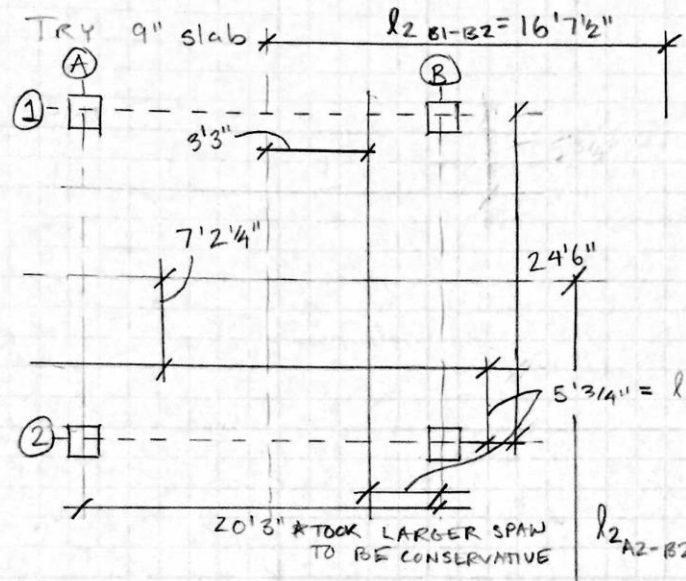 TRY 9" slab
l2 B1-B2 = 16'7½"
A
B
1
3'3"
7'2¼"
24'6"
5'3/4" = l
2
20'3" * TOOK LARGER SPAN
TO BE CONSERVATIVE
l2 A2-B2